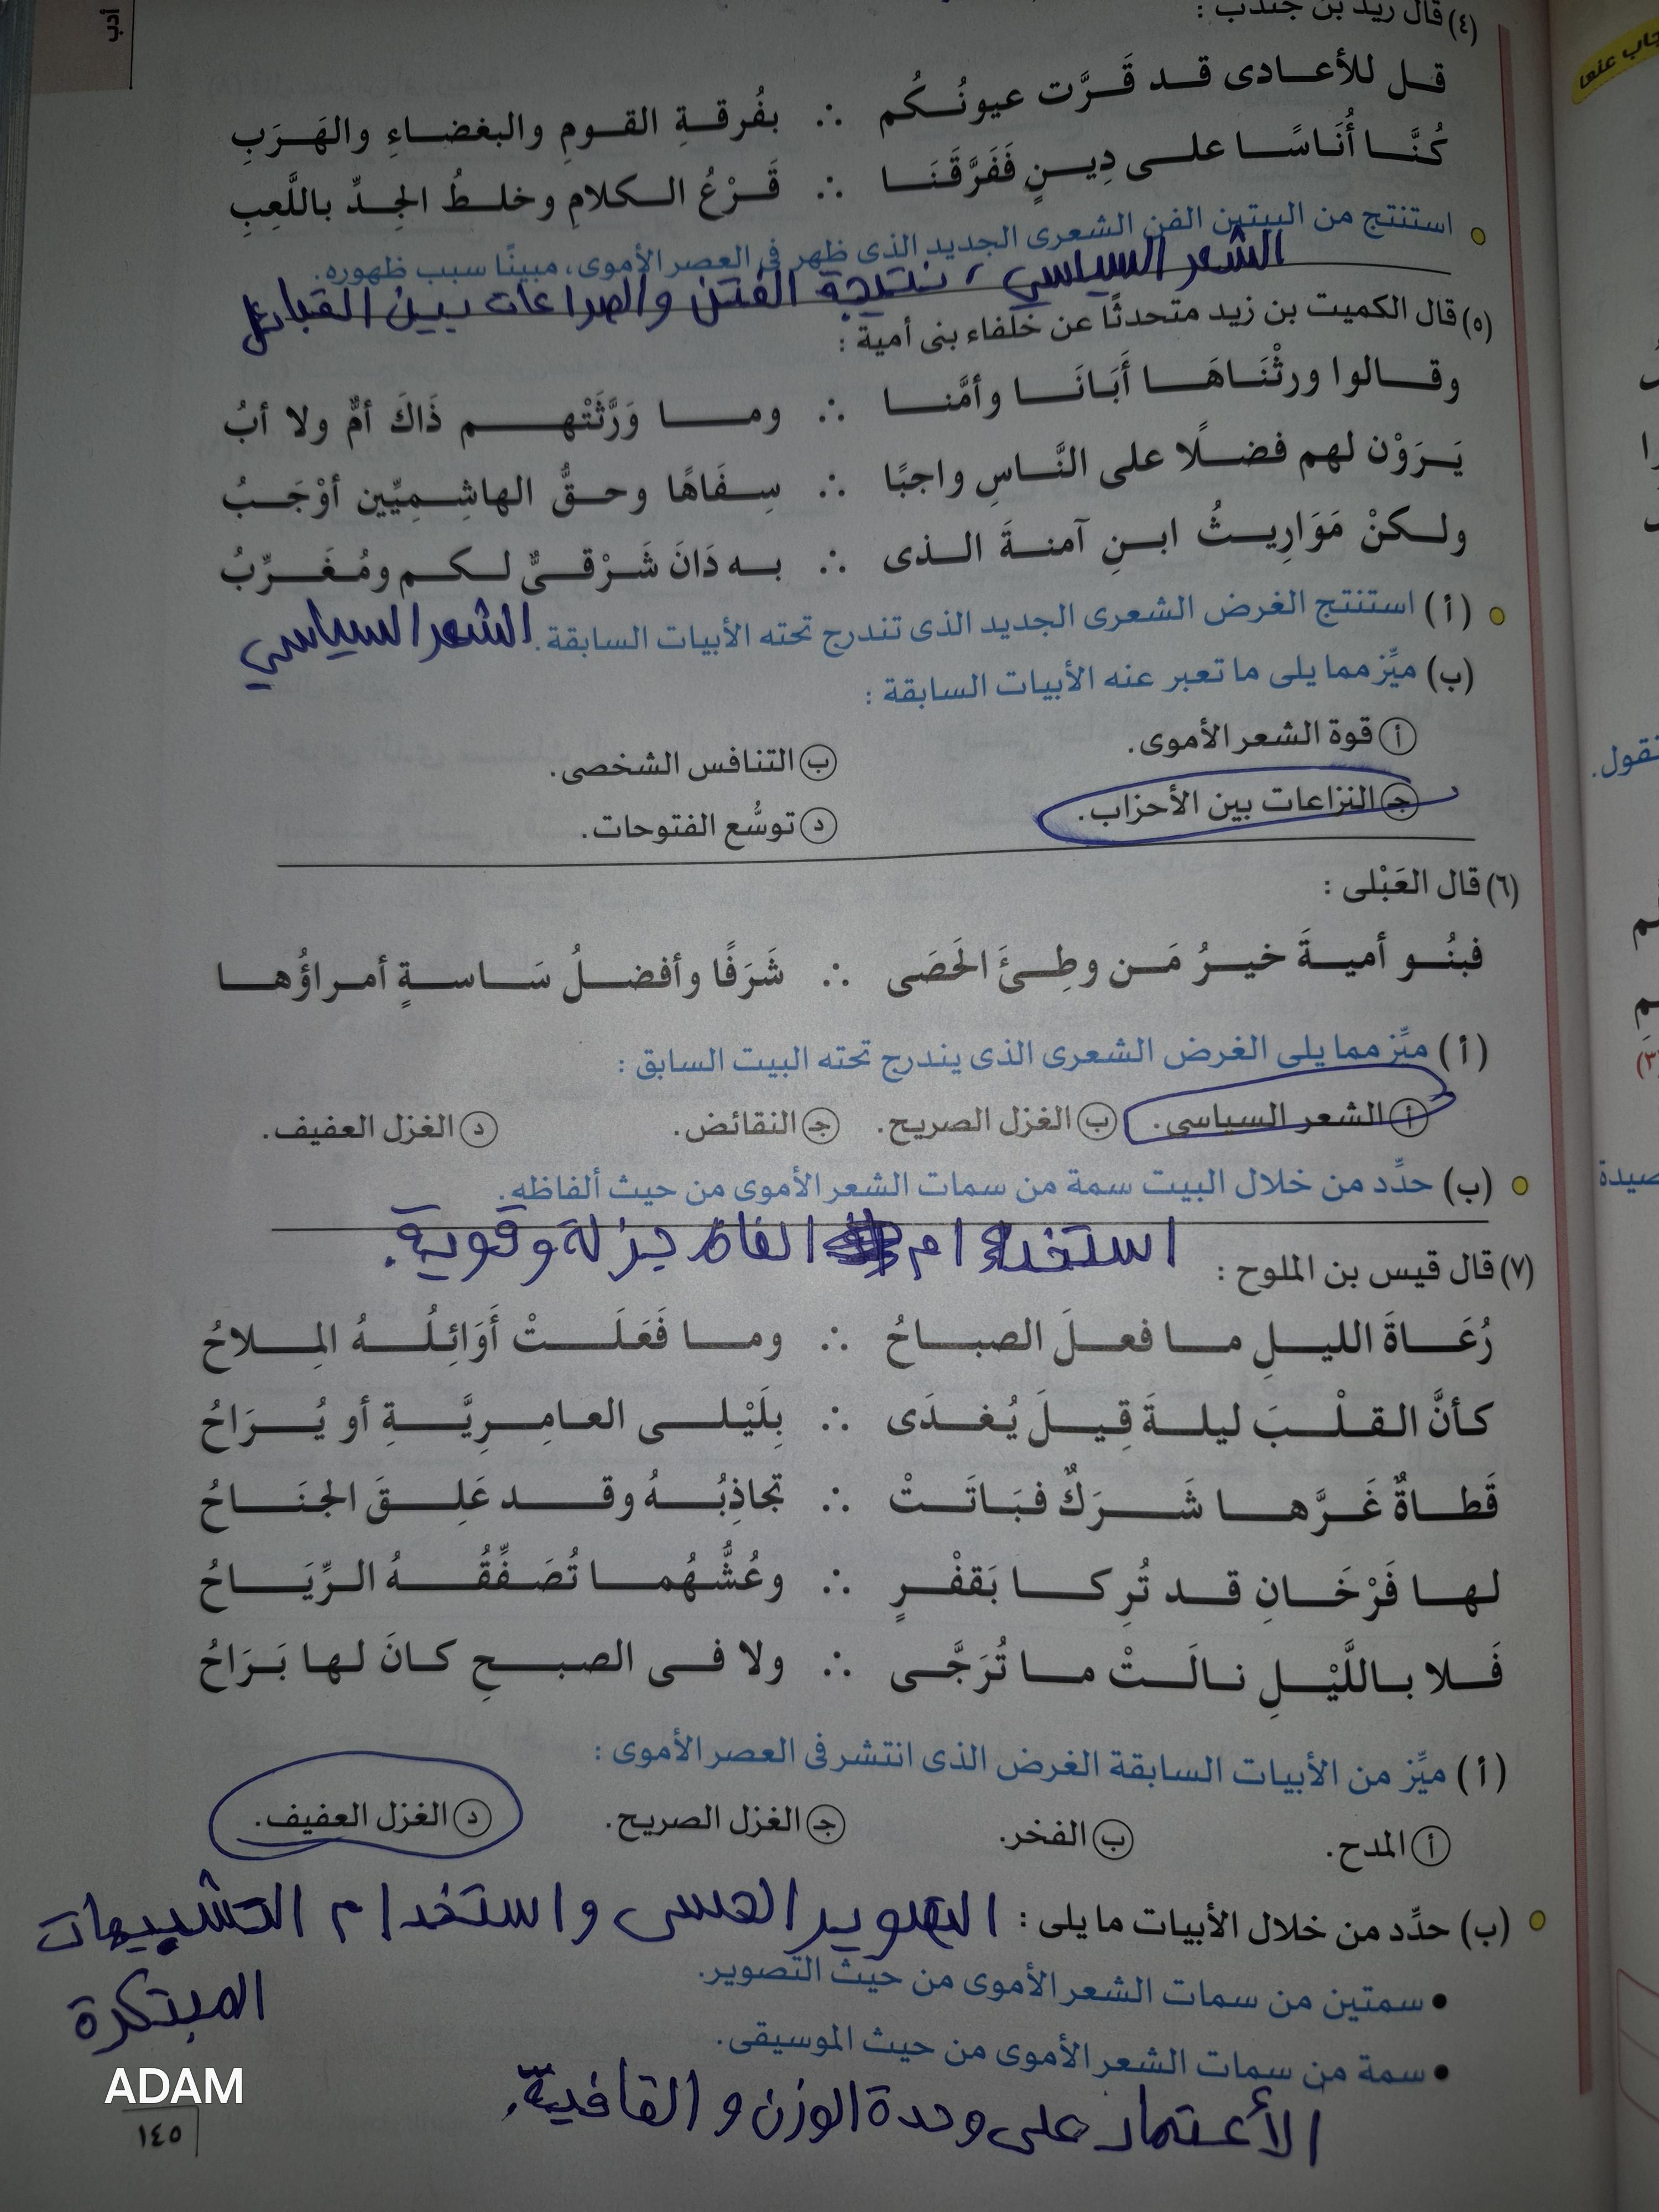 أدب
(٤) قال زيد بن جندب :
قل للأعادى قد قَرَّت عيونُكُم ∴ بفُرقةِ القومِ والبغضاءِ والهَرَبِ
كُنَّا أُنَاسًا على دِينٍ فَفَرَّقَنَا ∴ قَرْعُ الكلامِ وخلطُ الجِدِّ باللَّعِبِ
استنتج من البيتين الفن الشعرى الجديد الذى ظهر فى العصر الأموى، مبينًا سبب ظهوره.
الشعر السياسي ، نتيجة الفتن والصراعات بين القبائل
(٥) قال الكميت بن زيد متحدثًا عن خلفاء بنى أمية :
وقالوا ورثْنَاهَا أَبَانَا وأمَّنا ∴ وما وَرَّثَتْهم ذَاكَ أمٌّ ولا أبُ
يَرَوْن لهم فضلًا على النَّاسِ واجبًا ∴ سِفَاهًا وحقُّ الهاشِمِيِّين أوْجَبُ
ولكنْ مَوَارِيثُ ابنِ آمنةَ الذى ∴ به دَانَ شَرْقىٌّ لكم ومُغَرِّبُ
(أ) استنتج الغرض الشعرى الجديد الذى تندرج تحته الأبيات السابقة. الشعر السياسي
(ب) ميِّز مما يلى ما تعبر عنه الأبيات السابقة :
أ قوة الشعر الأموى. ب التنافس الشخصى.
جـ النزاعات بين الأحزاب. د توسُّع الفتوحات.
(٦) قال العَبْلى :
فبنُو أميةَ خيرُ مَن وطِئَ الحَصَى ∴ شَرَفًا وأفضلُ سَاسةٍ أمراؤُها
(أ) ميِّز مما يلى الغرض الشعرى الذى يندرج تحته البيت السابق :
أ الشعر السياسى. ب الغزل الصريح. جـ النقائض. د الغزل العفيف.
(ب) حدِّد من خلال البيت سمة من سمات الشعر الأموى من حيث ألفاظه.
استخدام الفاظ جزلة وقوية.
(٧) قال قيس بن الملوح :
رُعَاةَ الليلِ ما فعلَ الصباحُ ∴ وما فَعَلَتْ أَوَائِلُهُ المِلاحُ
كأنَّ القلْبَ ليلةَ قِيلَ يُغدَى ∴ بِلَيْلى العامِرِيَّةِ أو يُرَاحُ
قَطاةٌ غَرَّها شَرَكٌ فبَاتَتْ ∴ تجاذِبُهُ وقد عَلِقَ الجنَاحُ
لها فَرْخَانِ قد تُرِكا بَقفْرٍ ∴ وعُشُّهُما تُصَفِّقُهُ الرِّيَاحُ
فَلا باللَّيْلِ نالَتْ ما تُرَجَّى ∴ ولا فى الصبحِ كانَ لها بَرَاحُ
(أ) ميِّز من الأبيات السابقة الغرض الذى انتشر فى العصر الأموى :
أ المدح. ب الفخر. جـ الغزل الصريح. د الغزل العفيف.
(ب) حدِّد من خلال الأبيات ما يلى : التصوير الحسى واستخدام التشبيهات
المبتكرة
• سمتين من سمات الشعر الأموى من حيث التصوير.
• سمة من سمات الشعر الأموى من حيث الموسيقى.
الأعتماد على وحدة الوزن والقافية.
ADAM
١٤٥